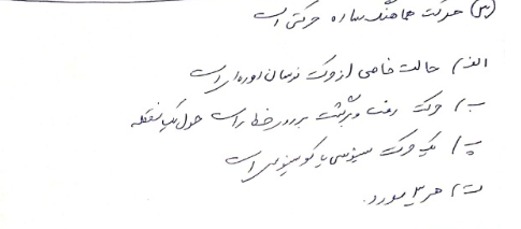 س) حرکت هماهنگ ساده حرکتی است
الف) حالت خاصی از حرکت نوسان دوره ای است
ب) حرکت رفت و برگشت بر روی خط راست حول یک نقطه
پ) یک حرکت سینوسی یا کوسینوسی است
ت) هر ۳ مورد.